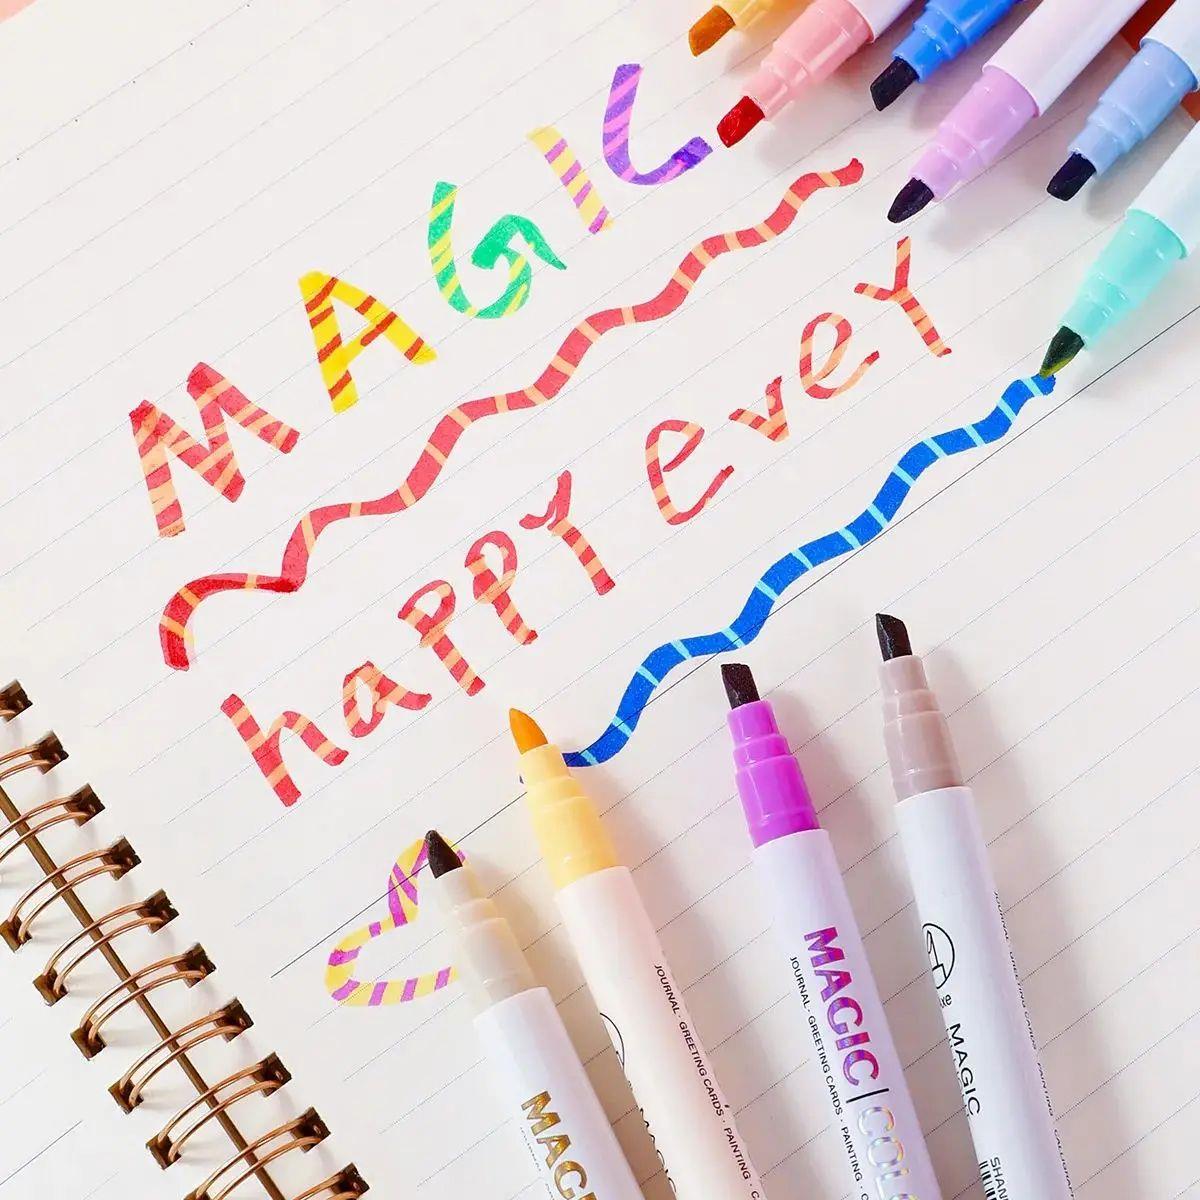 MAGIC
happy every
MAGIC
JOURNAL · GREETING CARDS · PAINTING ·
MAGIC | COLO
JOURNAL · GREETING CARDS · PAINTING · C
MAGIC
JOURNAL · GREETING CARDS · PAINTING · CALLIGRA
SHAN